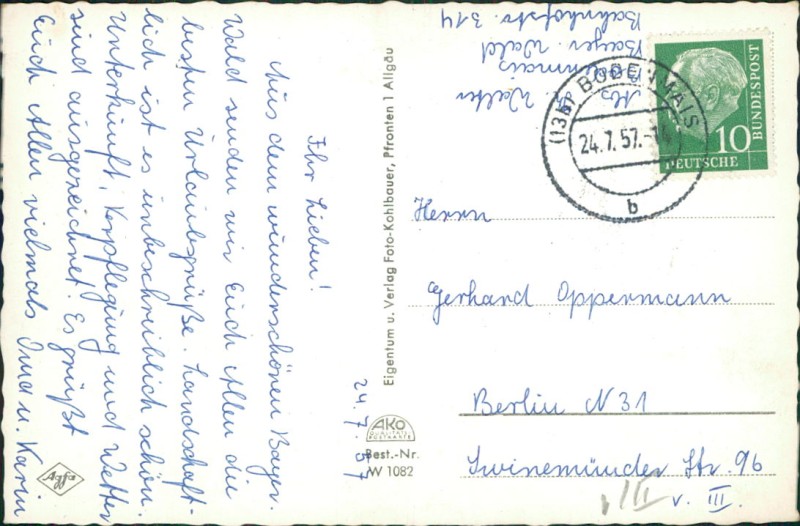 24.7.57
Ihr Lieben!
Aus dem wunderschönen Bayer.
Wald senden wir Euch Allen die
besten Urlaubsgrüße. Landschaft-
lich ist es unbeschreiblich schön.
Unterkunft, Verpflegung und Wetter
sind ausgezeichnet. Es grüßt
Euch Allen vielmals Oma u. Karin
Agfa
Eigentum u. Verlag Foto-Kohlbauer, Pfronten 1 Allgäu
AKO
QUALITÄTS
POSTKARTE
Best.-Nr.
W 1082
Walter
Bayer. Wald
Bahnhofstr. 314
(13b) BODENMAIS
24.7.57.-14
b
10
DEUTSCHE
BUNDESPOST
Herrn
Gerhard Oppermann
Berlin N 31
Swinemünder Str. 96
v. III.